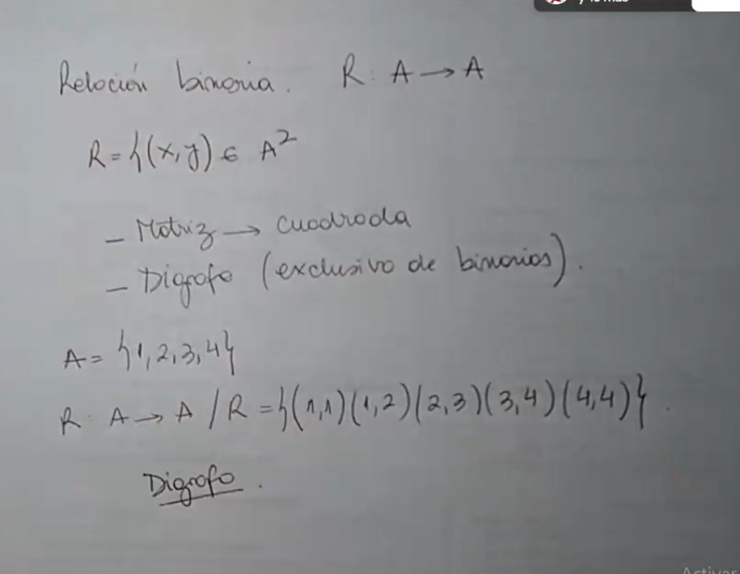 Relación binaria. R: A → A
R = {(x,y) ∈ A²
- Matriz → cuadrada
- Digrafo (exclusivo de binarias).
A = {1,2,3,4}
R: A → A / R = {(1,1)(1,2)(2,3)(3,4)(4,4)}.
Digrafo.